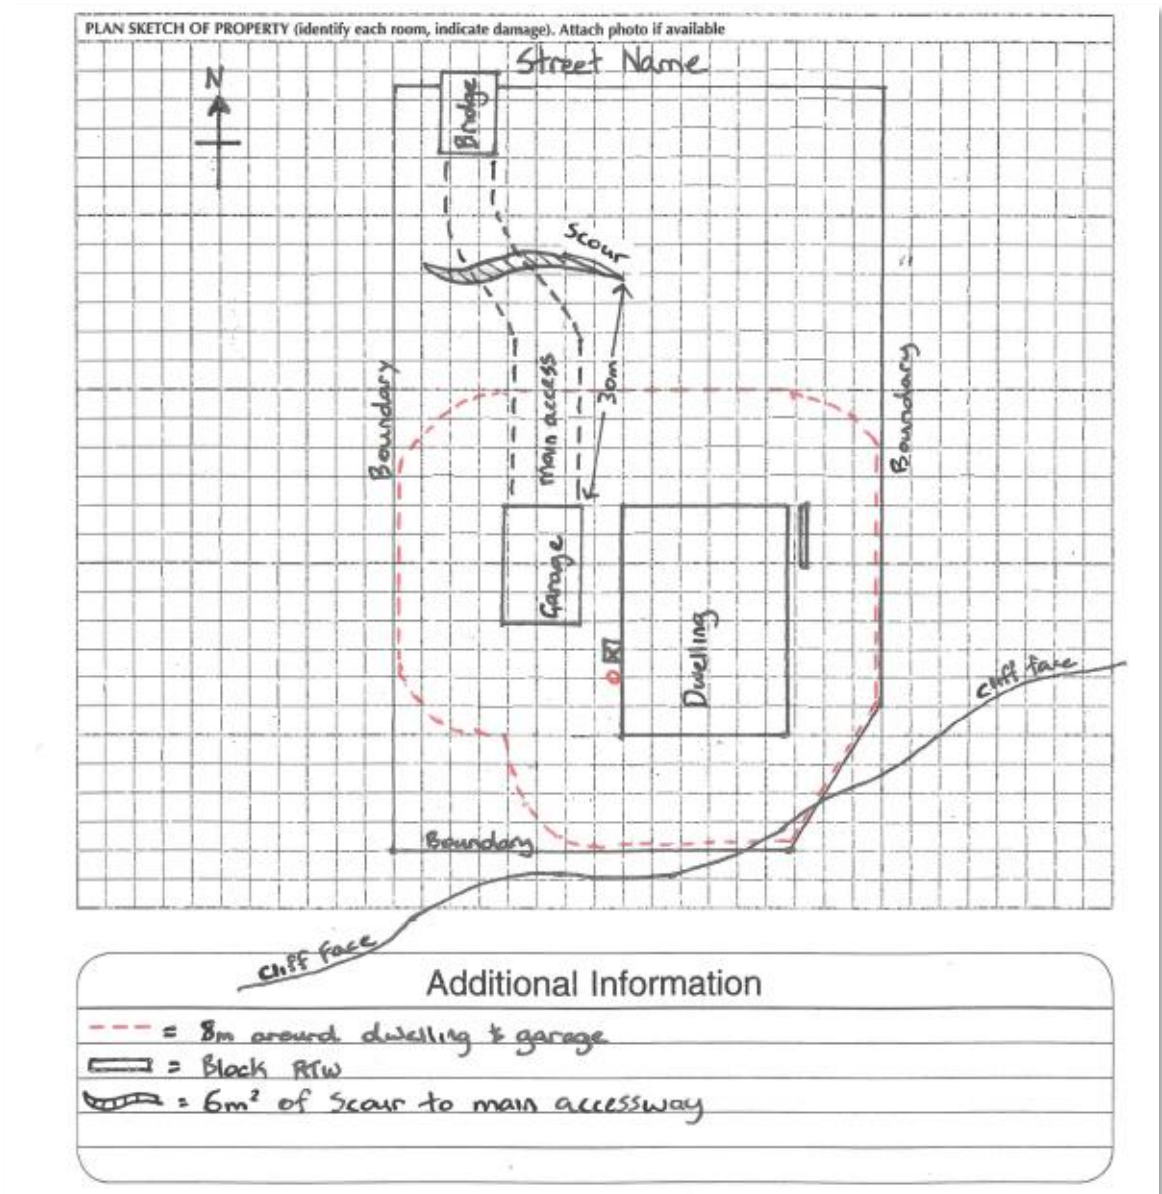 PLAN SKETCH OF PROPERTY (identify each room, indicate damage). Attach photo if available
Street Name
N
Bridge
Scour
30m
main access
Boundary
Boundary
Garage
Dwelling
cliff face
Boundary
cliff face
Additional Information
= 8m around dwelling & garage
= Block RTW
= 6m² of Scour to main accessway